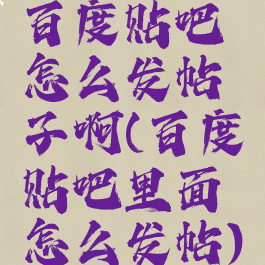 百度贴吧
怎么发帖
子啊(百度
贴吧里面
怎么发帖)